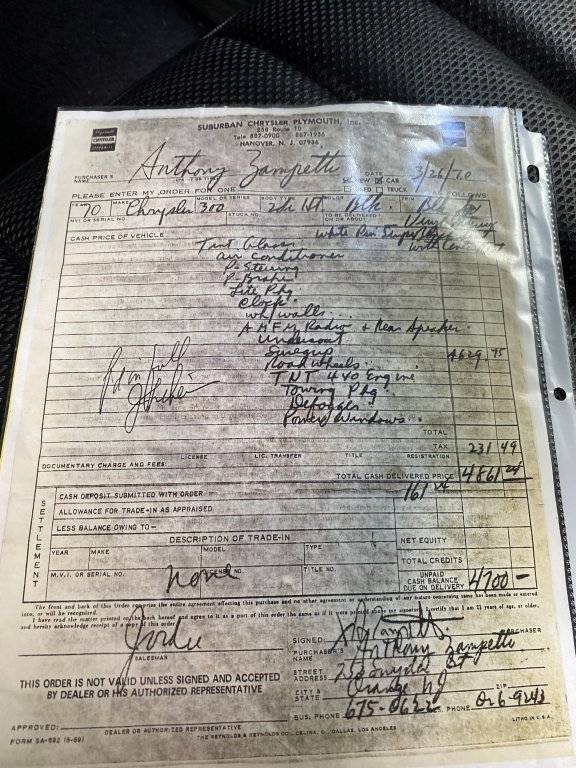 SUBURBAN CHRYSLER PLYMOUTH, Inc.
258 Route 10
Tele. 887-0900 887-1936
HANOVER, N. J. 07936
PURCHASER'S NAME Anthony Zampetti DATE 3/26/70
NEW CAR
USED TRUCK
PLEASE ENTER MY ORDER FOR ONE FOLLOWS
YEAR 70 MAKE Chrysler MODEL OR SERIES 300 BODY 2dr HT COLOR Blk. TRIM
MVI OR SERIAL NO. STOCK NO. TO BE DELIVERED ON OR ABOUT
CASH PRICE OF VEHICLE White Pin
Tint Glass
air conditioner
P-Steering
P-Brake
Lite Pkg
Clock
wh/walls
AM FM Radio + Rear Speaker
Undercoat
4629 75
Road Wheels
TNT 440 Engine
Towing Pkg
Defogger
Power Windows
Paid in full
TOTAL
TAX 231 49
LICENSE LIC. TRANSFER TITLE REGISTRATION
DOCUMENTARY CHARGE AND FEES:
TOTAL CASH DELIVERED PRICE 4861 24
SETTLEMENT
CASH DEPOSIT SUBMITTED WITH ORDER 161 24
ALLOWANCE FOR TRADE-IN AS APPRAISED
LESS BALANCE OWING TO—
DESCRIPTION OF TRADE-IN NET EQUITY
YEAR MAKE MODEL TYPE TOTAL CREDITS
M.V.I. OR SERIAL NO. LICENSE NO. TITLE NO. UNPAID CASH BALANCE DUE ON DELIVERY 4700 —
None
The front and back of this Order comprise the entire agreement affecting this purchase and no other agreement or understanding of any nature concerning same has been made or entered
into, or will be recognized.
I have read the matter printed on the back hereof and agree to it as a part of this order the same as if it were printed above my signature. I certify that I am 21 years of age, or older,
and hereby acknowledge receipt of a copy of this order.
SALESMAN
SIGNED: PURCHASER
PURCHASER'S NAME Anthony Zampetti
STREET ADDRESS St
CITY & STATE Orange NJ ZIP
BUS. PHONE 675-0622 PHONE
THIS ORDER IS NOT VALID UNLESS SIGNED AND ACCEPTED
BY DEALER OR HIS AUTHORIZED REPRESENTATIVE
APPROVED:
DEALER OR AUTHORIZED REPRESENTATIVE
FORM SA-692 (5-69) THE REYNOLDS & REYNOLDS CO., CELINA, O., DALLAS, LOS ANGELES LITHO IN U.S.A.